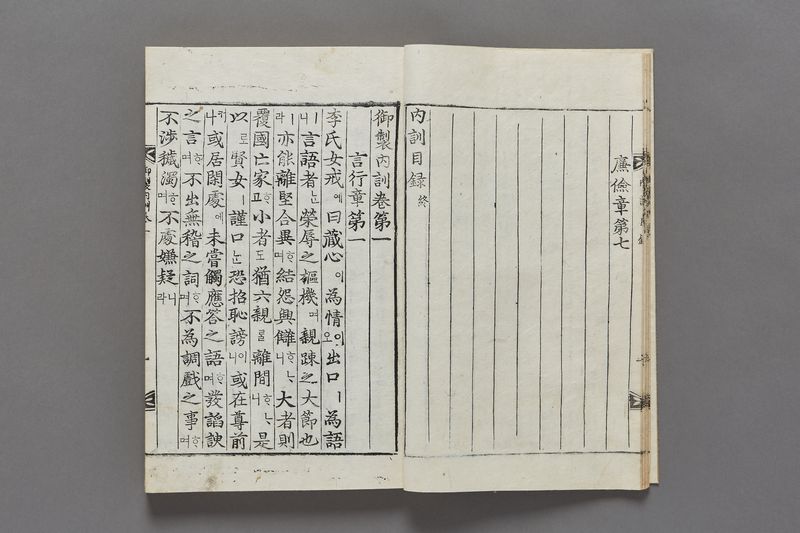 廉儉章第七
內訓目錄 終
御製內訓卷第一
言行章第一
李氏女戒예曰藏心이爲情이오出口ㅣ爲語
ㅣ니言語者ᄂᆞᆫ榮辱之樞機며親踈之大節也
ㅣ라亦能離堅合異ᄒᆞ며結怨興讎ᄒᆞᄂᆞ니大者則
覆國亡家ᄒᆞ고小者도猶六親ᄅᆞᆯ離間ᄒᆞᄂᆞ니是
以로賢女ㅣ謹口ᄂᆞᆫ恐招恥謗이니或在尊前
커나或居閑處에未嘗觸應答之語ᄒᆞ며發諂諛
之言ᄒᆞ며不出無稽之詞ᄒᆞ며不爲調戲之事ᄒᆞ며
不涉穢濁ᄒᆞ며不處嫌疑ᄒᆞ니라